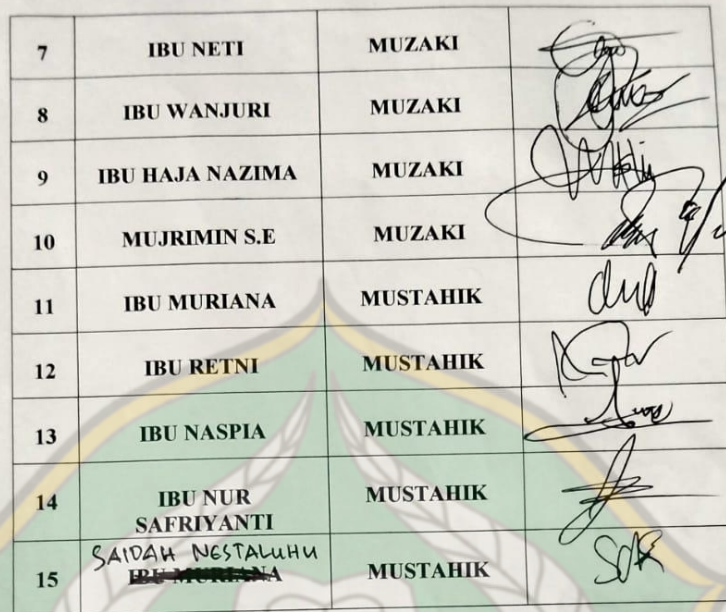 7 IBU NETI MUZAKI
8 IBU WANJURI MUZAKI
9 IBU HAJA NAZIMA MUZAKI
10 MUJRIMIN S.E MUZAKI
11 IBU MURIANA MUSTAHIK
12 IBU RETNI MUSTAHIK
13 IBU NASPIA MUSTAHIK
14 IBU NUR MUSTAHIK
SAFRIYANTI
SAIDAH NESTALUHU
15 IBU MURIANA MUSTAHIK